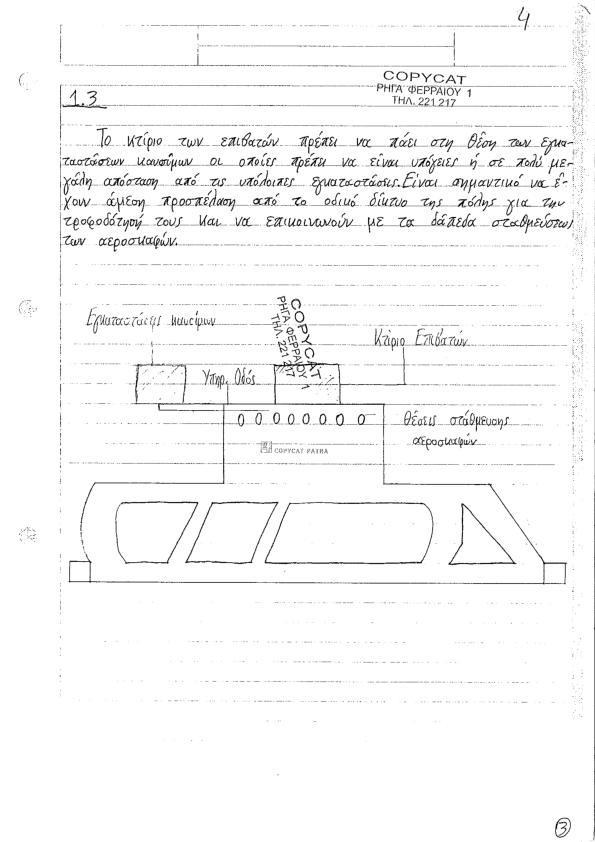 4
COPYCAT
ΡΗΓΑ ΦΕΡΡΑΙΟΥ 1
ΤΗΛ. 221 217
1.3
Το κτίριο των επιβατών πρέπει να πάει στη θέση των εγκα-
ταστάσεων καυσίμων οι οποίες πρέπει να είναι υπόγειες ή σε πολύ με-
γάλη απόσταση από τις υπόλοιπες εγκαταστάσεις. Είναι σημαντικό να έ-
χουν άμεση προσπέλαση από το οδικό δίκτυο της πόλης για την
τροφοδότησή τους και να επικοινωνούν με τα δάπεδα σταθμεύσεως
των αεροσκαφών.
Εγκαταστάσεις καυσίμων
COPYCAT
ΡΗΓΑ ΦΕΡΡΑΙΟΥ 1
ΤΗΛ. 221 217
Κτίριο Επιβατών
Υπηρ. Οδός
θέσεις στάθμευσης
αεροσκαφών
COPYCAT PATRA
3